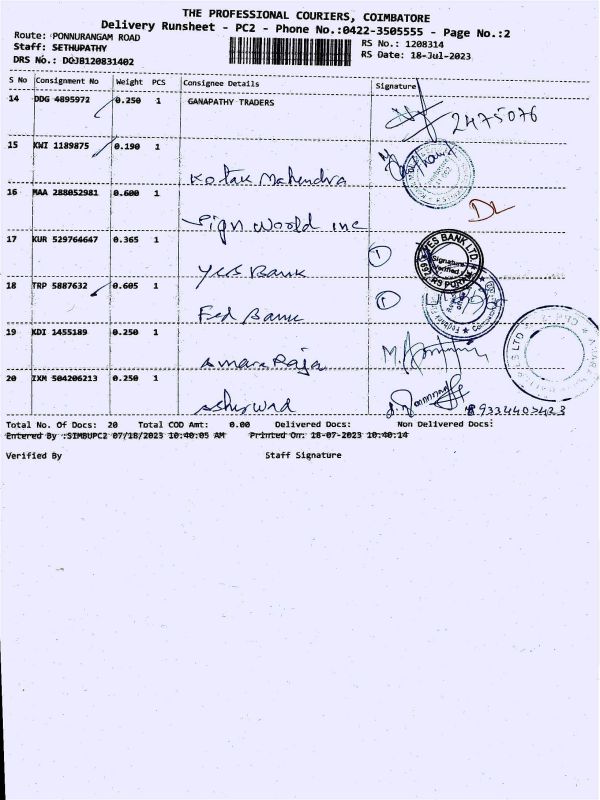 THE PROFESSIONAL COURIERS, COIMBATORE
Delivery Runsheet - PC2 - Phone No.:0422-3505555 - Page No.:2
Route: PONNURANGAM ROAD RS No.: 1208314
Staff: SETHUPATHY RS Date: 18-Jul-2023
DRS No.: DOJB120831402
S No Consignment No Weight PCS Consignee Details Signature
14 DDG 4895972 0.250 1 GANAPATHY TRADERS
2475076
15 KWI 1189875 0.190 1
Kotak Mahendra
16 MAA 288052981 0.600 1
DL
Sign Woorld inc
17 KUR 529764647 0.365 1
YES BANK LTD.
Signature Verified
Yes Bank
18 TRP 5887632 0.605 1
Fed Bank
19 KDI 1455189 0.250 1
Amara Raja
20 IXM 504206213 0.250 1
Total No. Of Docs: 20 Total COD Amt: 0.00 Delivered Docs: Non Delivered Docs:
Entered By :SIMBUPC2 07/18/2023 10:40:05 AM Printed On: 18-07-2023 10:40:14
Verified By Staff Signature